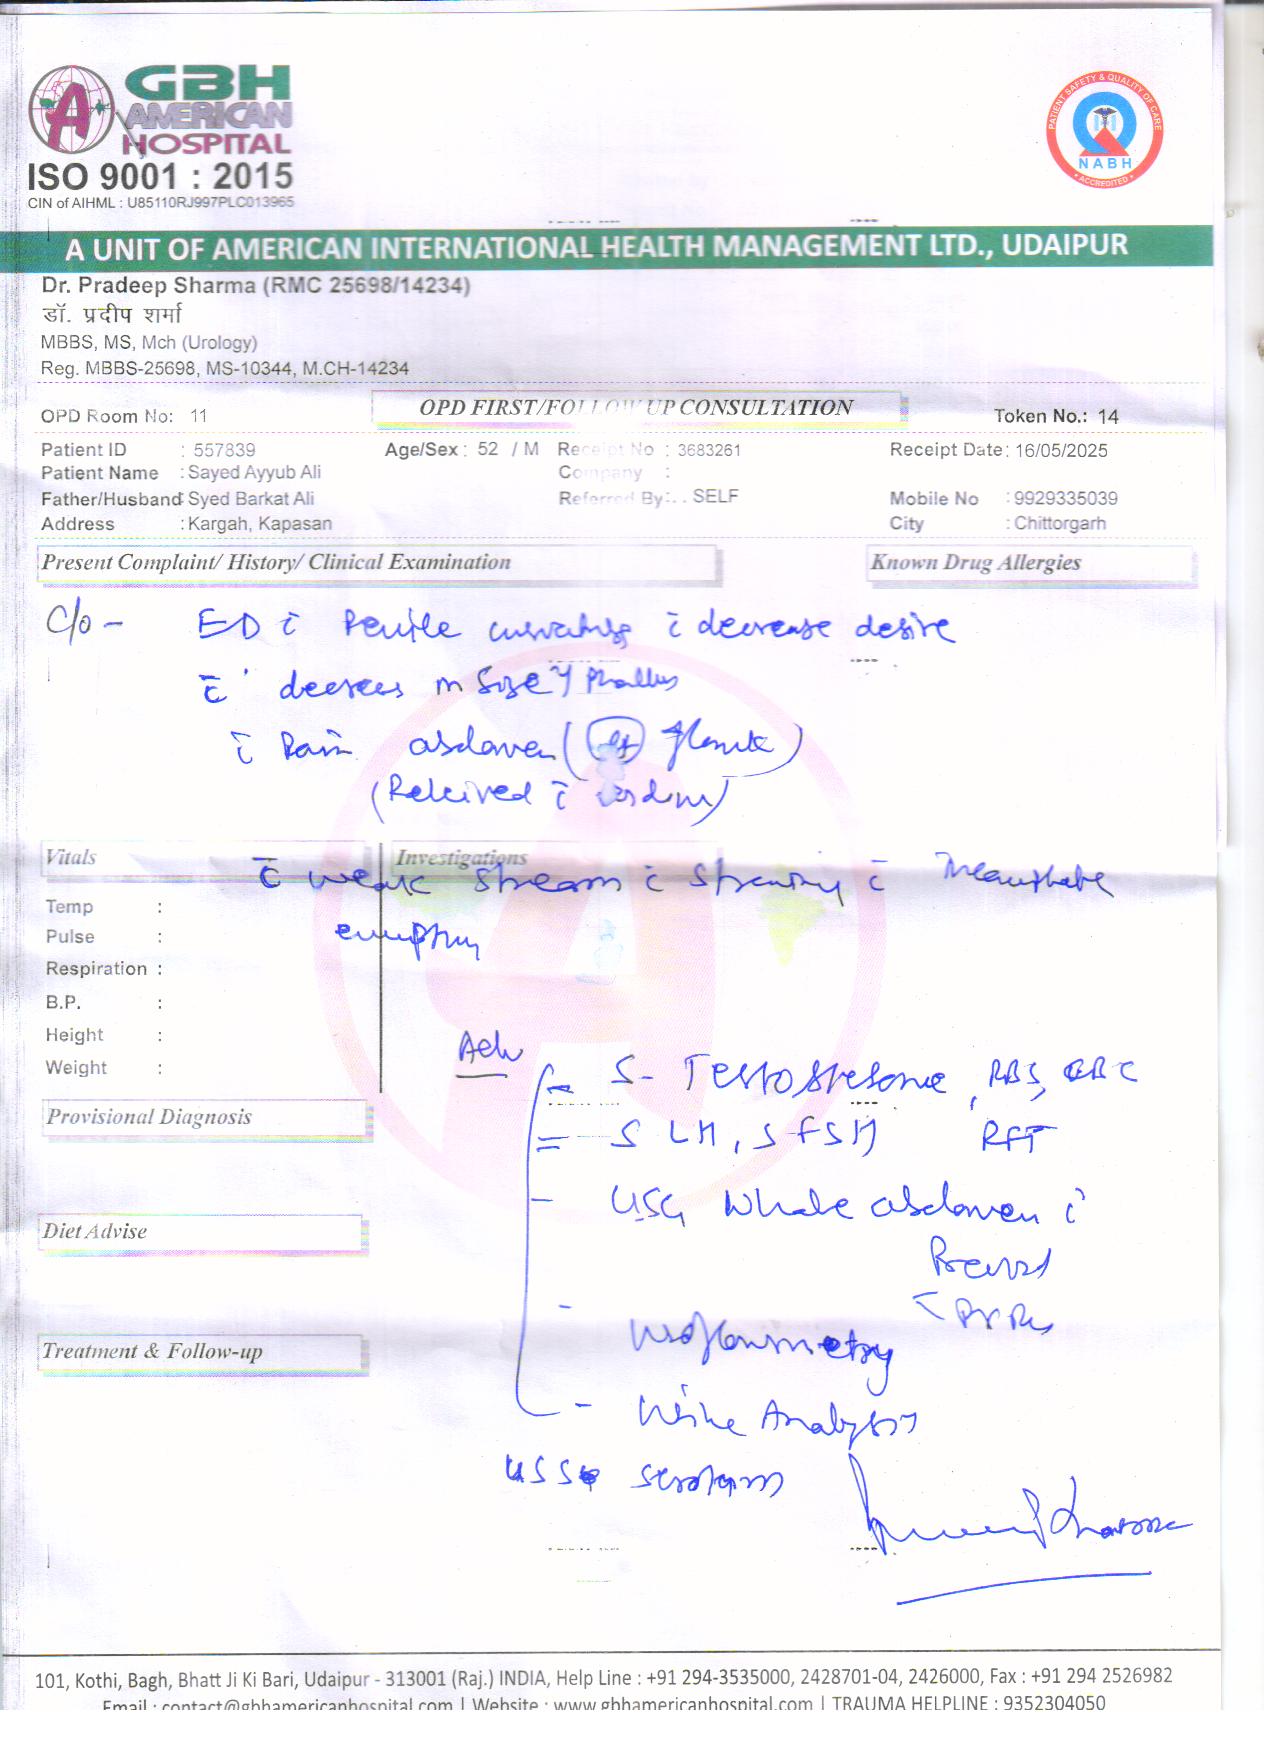 GBH
AMERICAN
HOSPITAL
ISO 9001 : 2015
CIN of AIHML : U85110RJ997PLC013965
PATIENT SAFETY & QUALITY OF CARE
NABH
ACCREDITED
A UNIT OF AMERICAN INTERNATIONAL HEALTH MANAGEMENT LTD., UDAIPUR
Dr. Pradeep Sharma (RMC 25698/14234)
डॉ. प्रदीप शर्मा
MBBS, MS, Mch (Urology)
Reg. MBBS-25698, MS-10344, M.CH-14234
OPD Room No: 11 OPD FIRST/FOLLOW UP CONSULTATION Token No.: 14
Patient ID : 557839 Age/Sex : 52 / M Receipt No : 3683261 Receipt Date: 16/05/2025
Patient Name : Sayed Ayyub Ali Company :
Father/Husband: Syed Barkat Ali Referred By: . . SELF Mobile No : 9929335039
Address : Kargah, Kapasan City : Chittorgarh
Present Complaint/ History/ Clinical Examination Known Drug Allergies
C/o - ED c̄ Penile c̄ decrease desire
c̄ decrees in size of phallus
c̄ Pain abdomen (Lt flank)
Vitals Investigations
c̄ weak stream c̄ c̄
Temp :
Pulse :
Respiration :
B.P. :
Height :
Weight :
Adv
- S- Testosterone, RBS, CBC
= S LH, S FSH RFT
Provisional Diagnosis
- USG Whole abdomen c̄
Diet Advise
c̄ PVRu
- Uroflowmetry
Treatment & Follow-up
- Urine Analysis
scrotum
101, Kothi, Bagh, Bhatt Ji Ki Bari, Udaipur - 313001 (Raj.) INDIA, Help Line : +91 294-3535000, 2428701-04, 2426000, Fax : +91 294 2526982
Email : contact@gbhamericanhospital.com | Website : www.gbhamericanhospital.com | TRAUMA HELPLINE : 9352304050